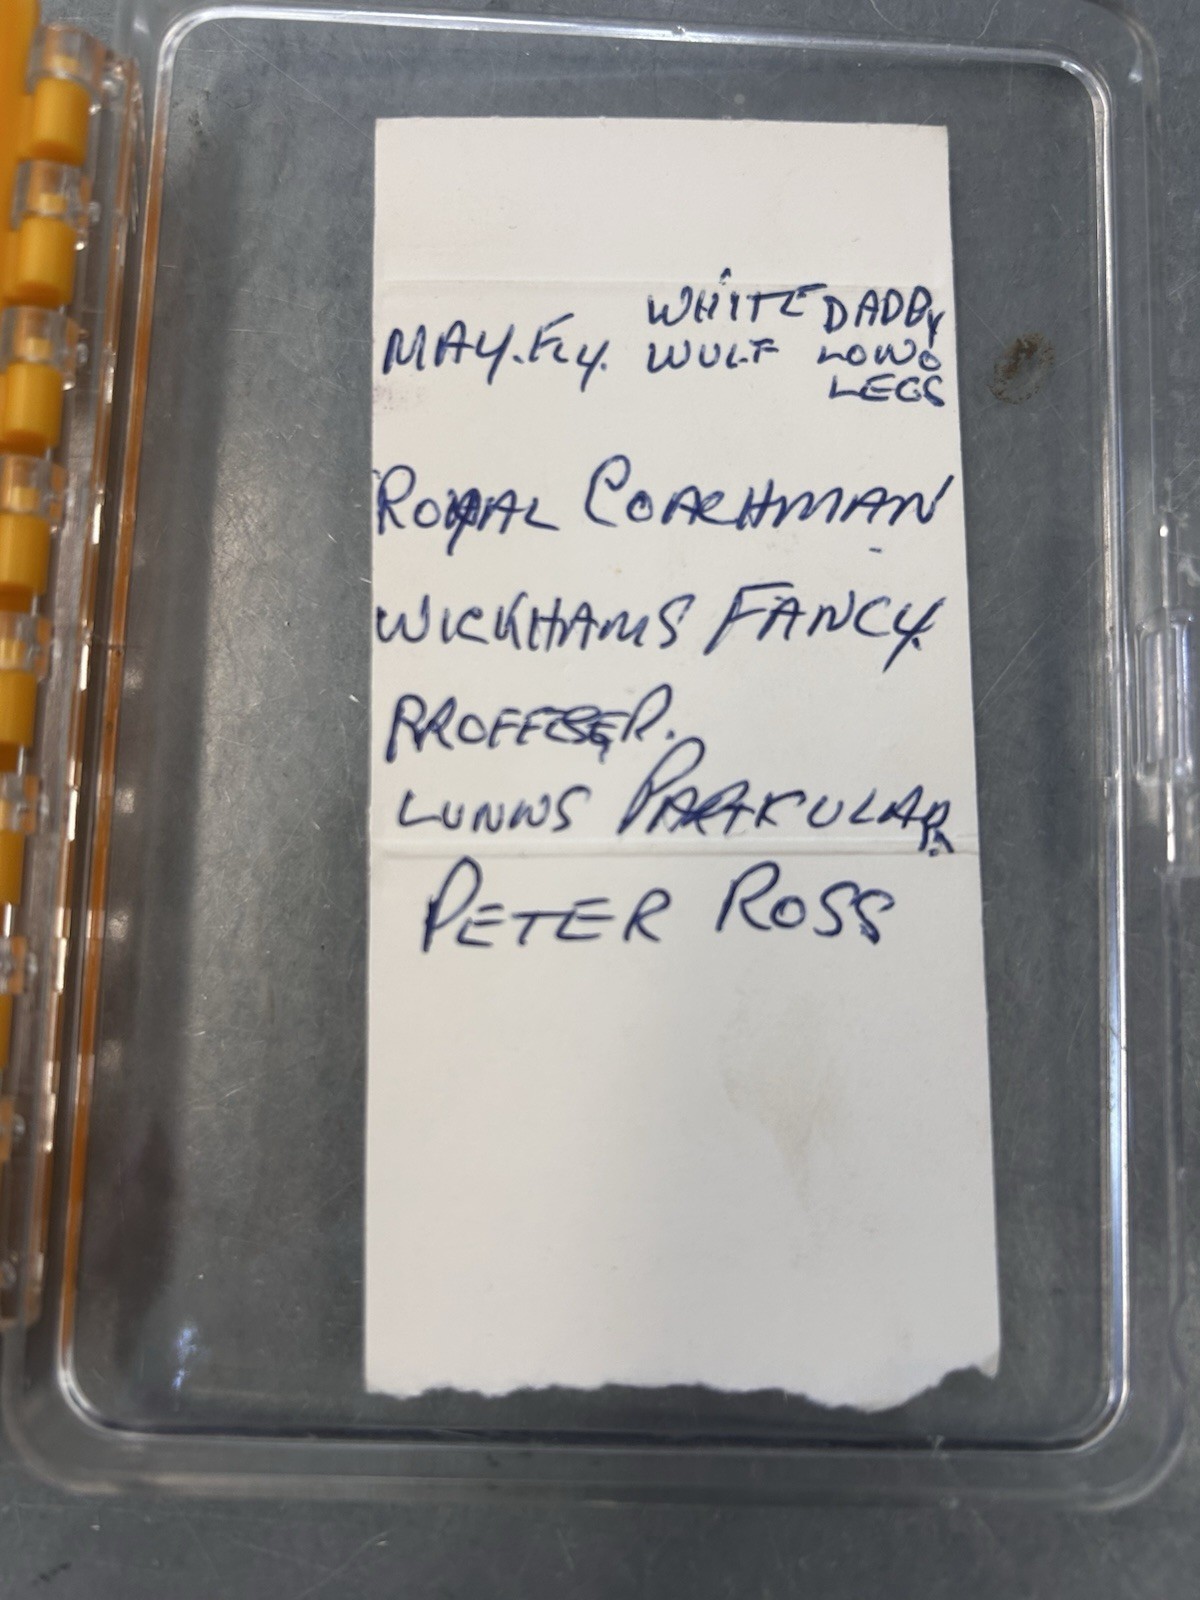 MAY.FLY. WHITE WULF DADDY LONG LEGS
ROYAL COACHMAN
WICKHAMS FANCY.
PROFESSER.
LUNNS PARTICULAR.
PETER ROSS